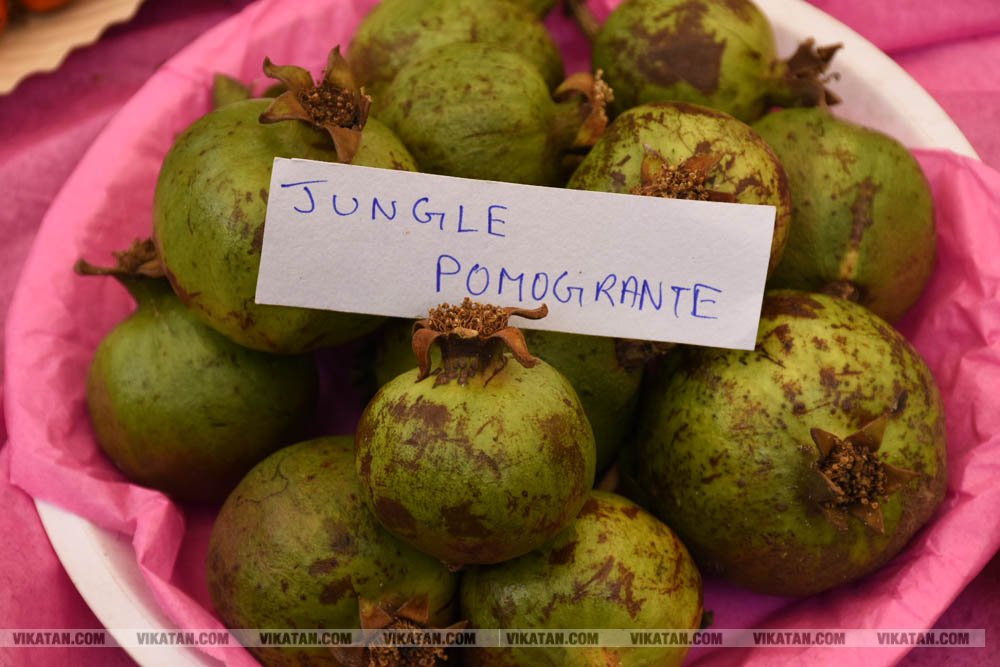 JUNGLE
POMOGIRANTE
VIKATAN.COM VIKATAN.COM VIKATAN.COM VIKATAN.COM VIKATAN.COM VIKATAN.COM VIKATAN.COM VIKATAN.COM